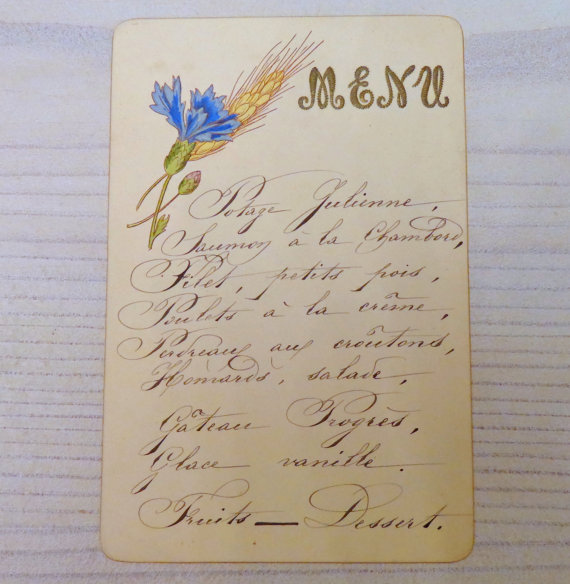 MENU
Potage Julienne,
Saumon à la Chambord,
Filet, petits pois,
Poulets à la crême,
Perdreaux aux croûtons,
Homards, salade,
Gâteau Progrès,
Glace vanille.
Fruits — Dessert.